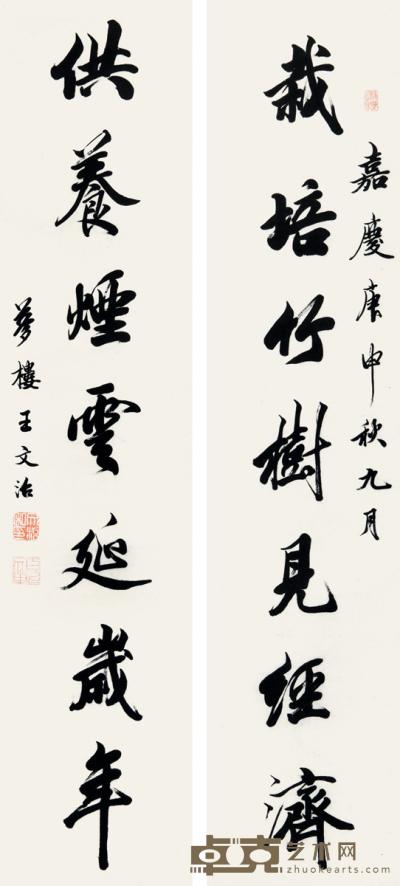 嘉慶庚申秋九月
栽培竹樹見經濟
供養煙雲延歲年
夢樓王文治
卓克艺术网
zhuokearts.com